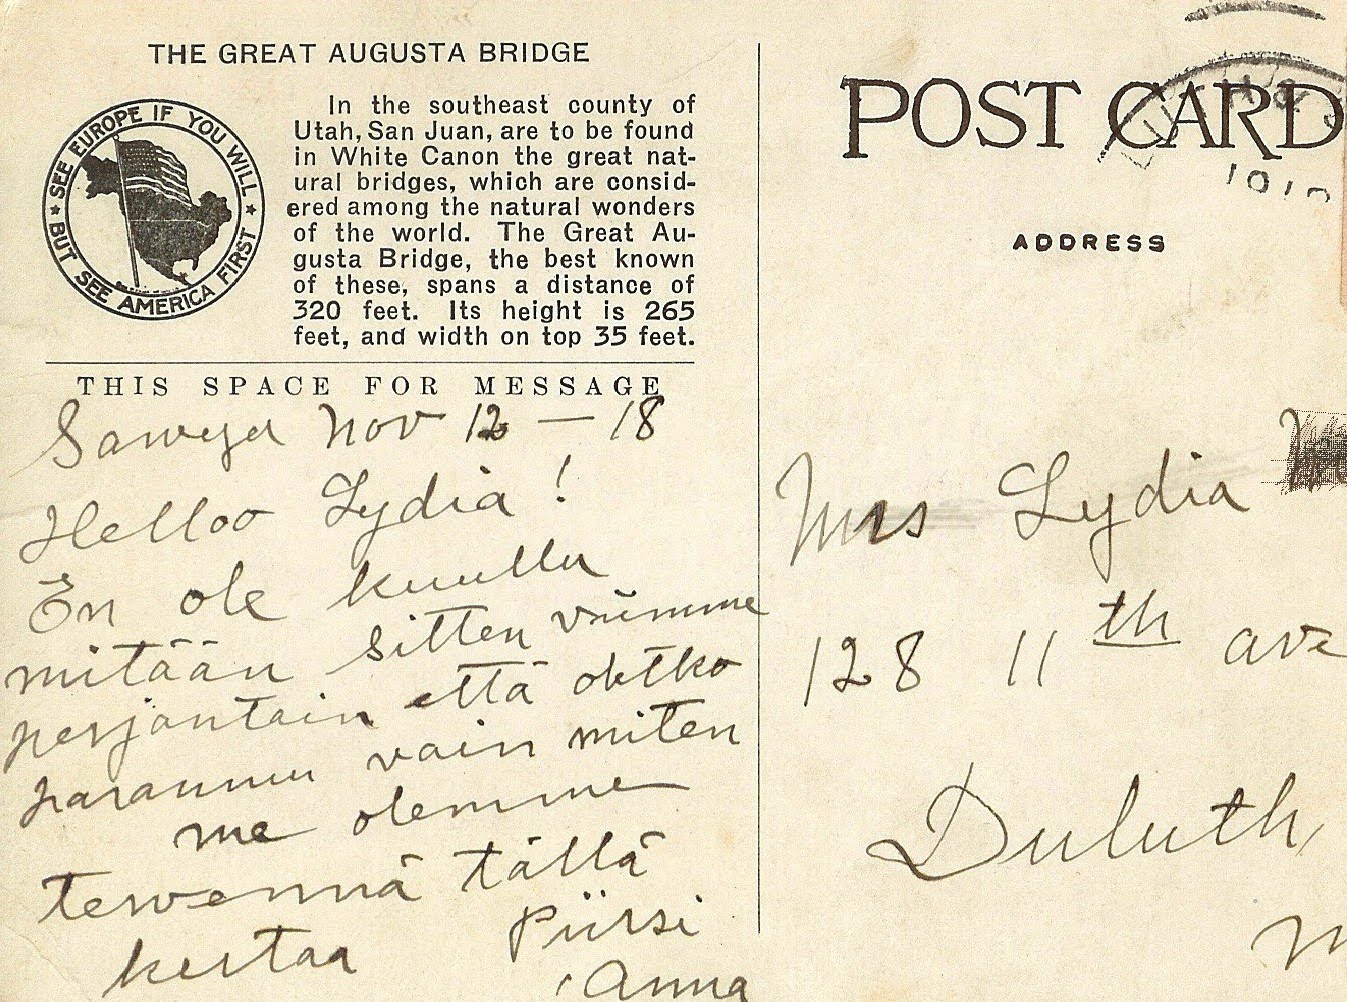 THE GREAT AUGUSTA BRIDGE
SEE EUROPE IF YOU WILL
BUT SEE AMERICA FIRST
In the southeast county of
Utah, San Juan, are to be found
in White Canon the great nat-
ural bridges, which are consid-
ered among the natural wonders
of the world. The Great Au-
gusta Bridge, the best known
of these, spans a distance of
320 feet. Its height is 265
feet, and width on top 35 feet.
THIS SPACE FOR MESSAGE
Sawyer Nov 12 — 18
Helloo Lydia!
En ole kuullu
mitään sitten viimme
perjantain että oletko
parannu vain miten
me olemme
tervennä tällä
kertaa Piirsi
Anna
POST CARD
ADDRESS
Mrs Lydia
128 11th ave
Duluth,